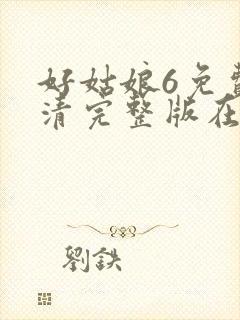 好姑娘6免费
清完整版在
劉鉄